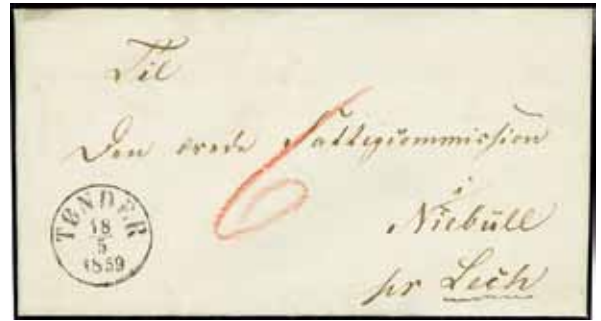 Til
Den ærede Fattigcommission
i
Niebüll
pr Leck
6
TØNDER
18
5
1859